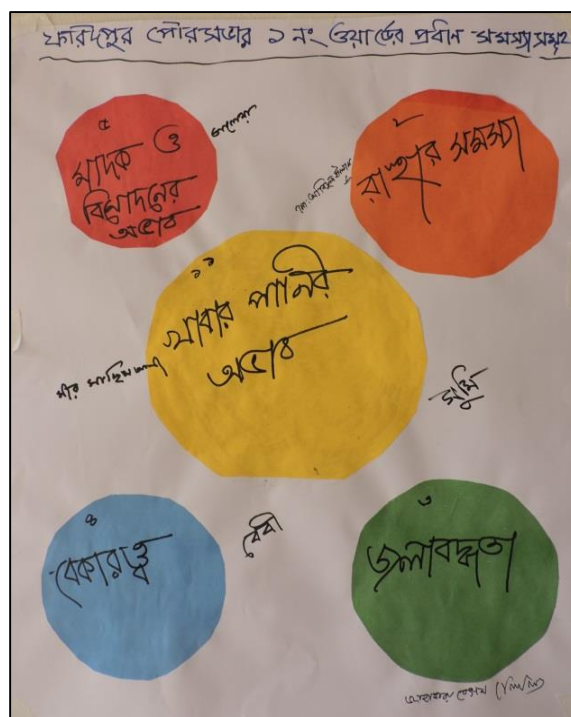 ফরিদপুর পৌরসভার ১ নং ওয়ার্ডের প্রধান সমস্যাসমূহ
৫
মাদক ও
বিনোদনের
অভাব
২
রাস্তার সমস্যা
১
খাবার পানির
অভাব
৪
বেকারত্ব
বেবী
৩
জলাবদ্ধতা